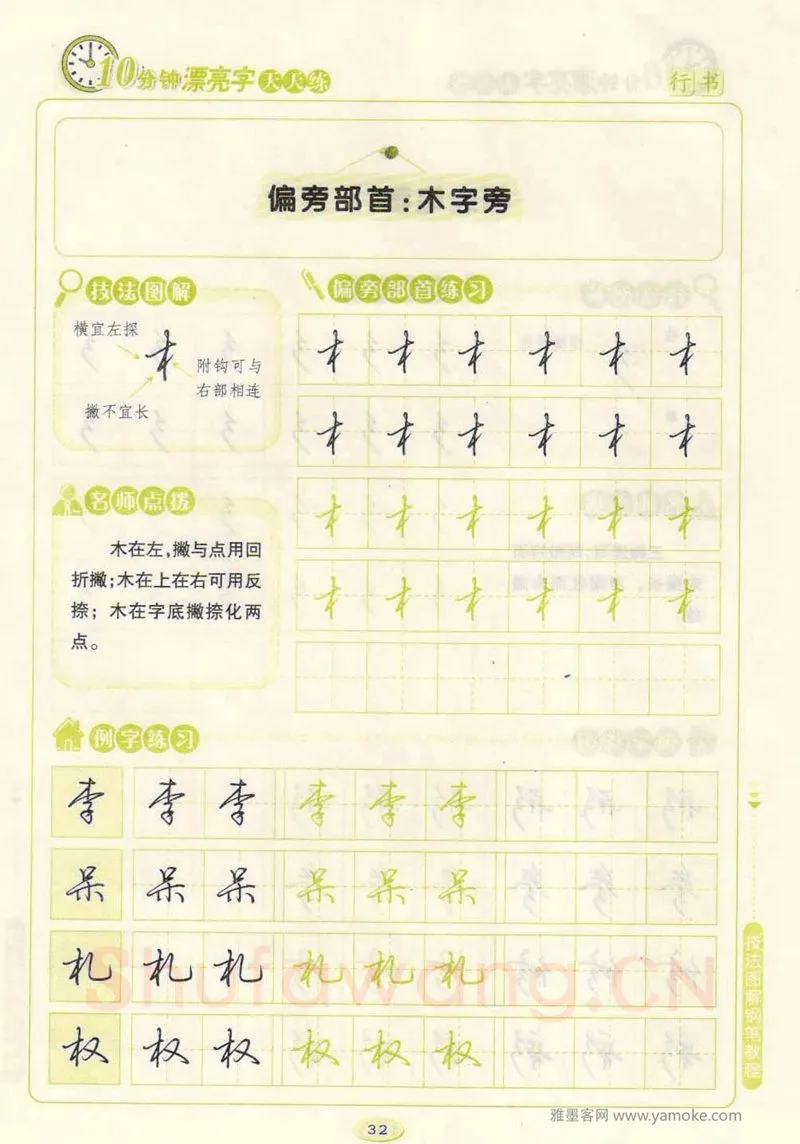 10分钟漂亮字天天练
行书
偏旁部首:木字旁
技法图解
横宜左探
附钩可与
右部相连
撇不宜长
偏旁部首练习
木 木 木 木 木 木
木 木 木 木 木 木
木 木 木 木 木 木
木 木 木 木 木 木
名师点拨
木在左,撇与点用回
折撇;木在上在右可用反
捺;木在字底撇捺化两
点。
例字练习
李 李 李 李 李 李
呆 呆 呆 呆 呆 呆
札 札 札 札 札 札
权 权 权 权 权 权
Shufawang.CN
技法图解钢笔教程
32
雅墨客网 www.yamoke.com